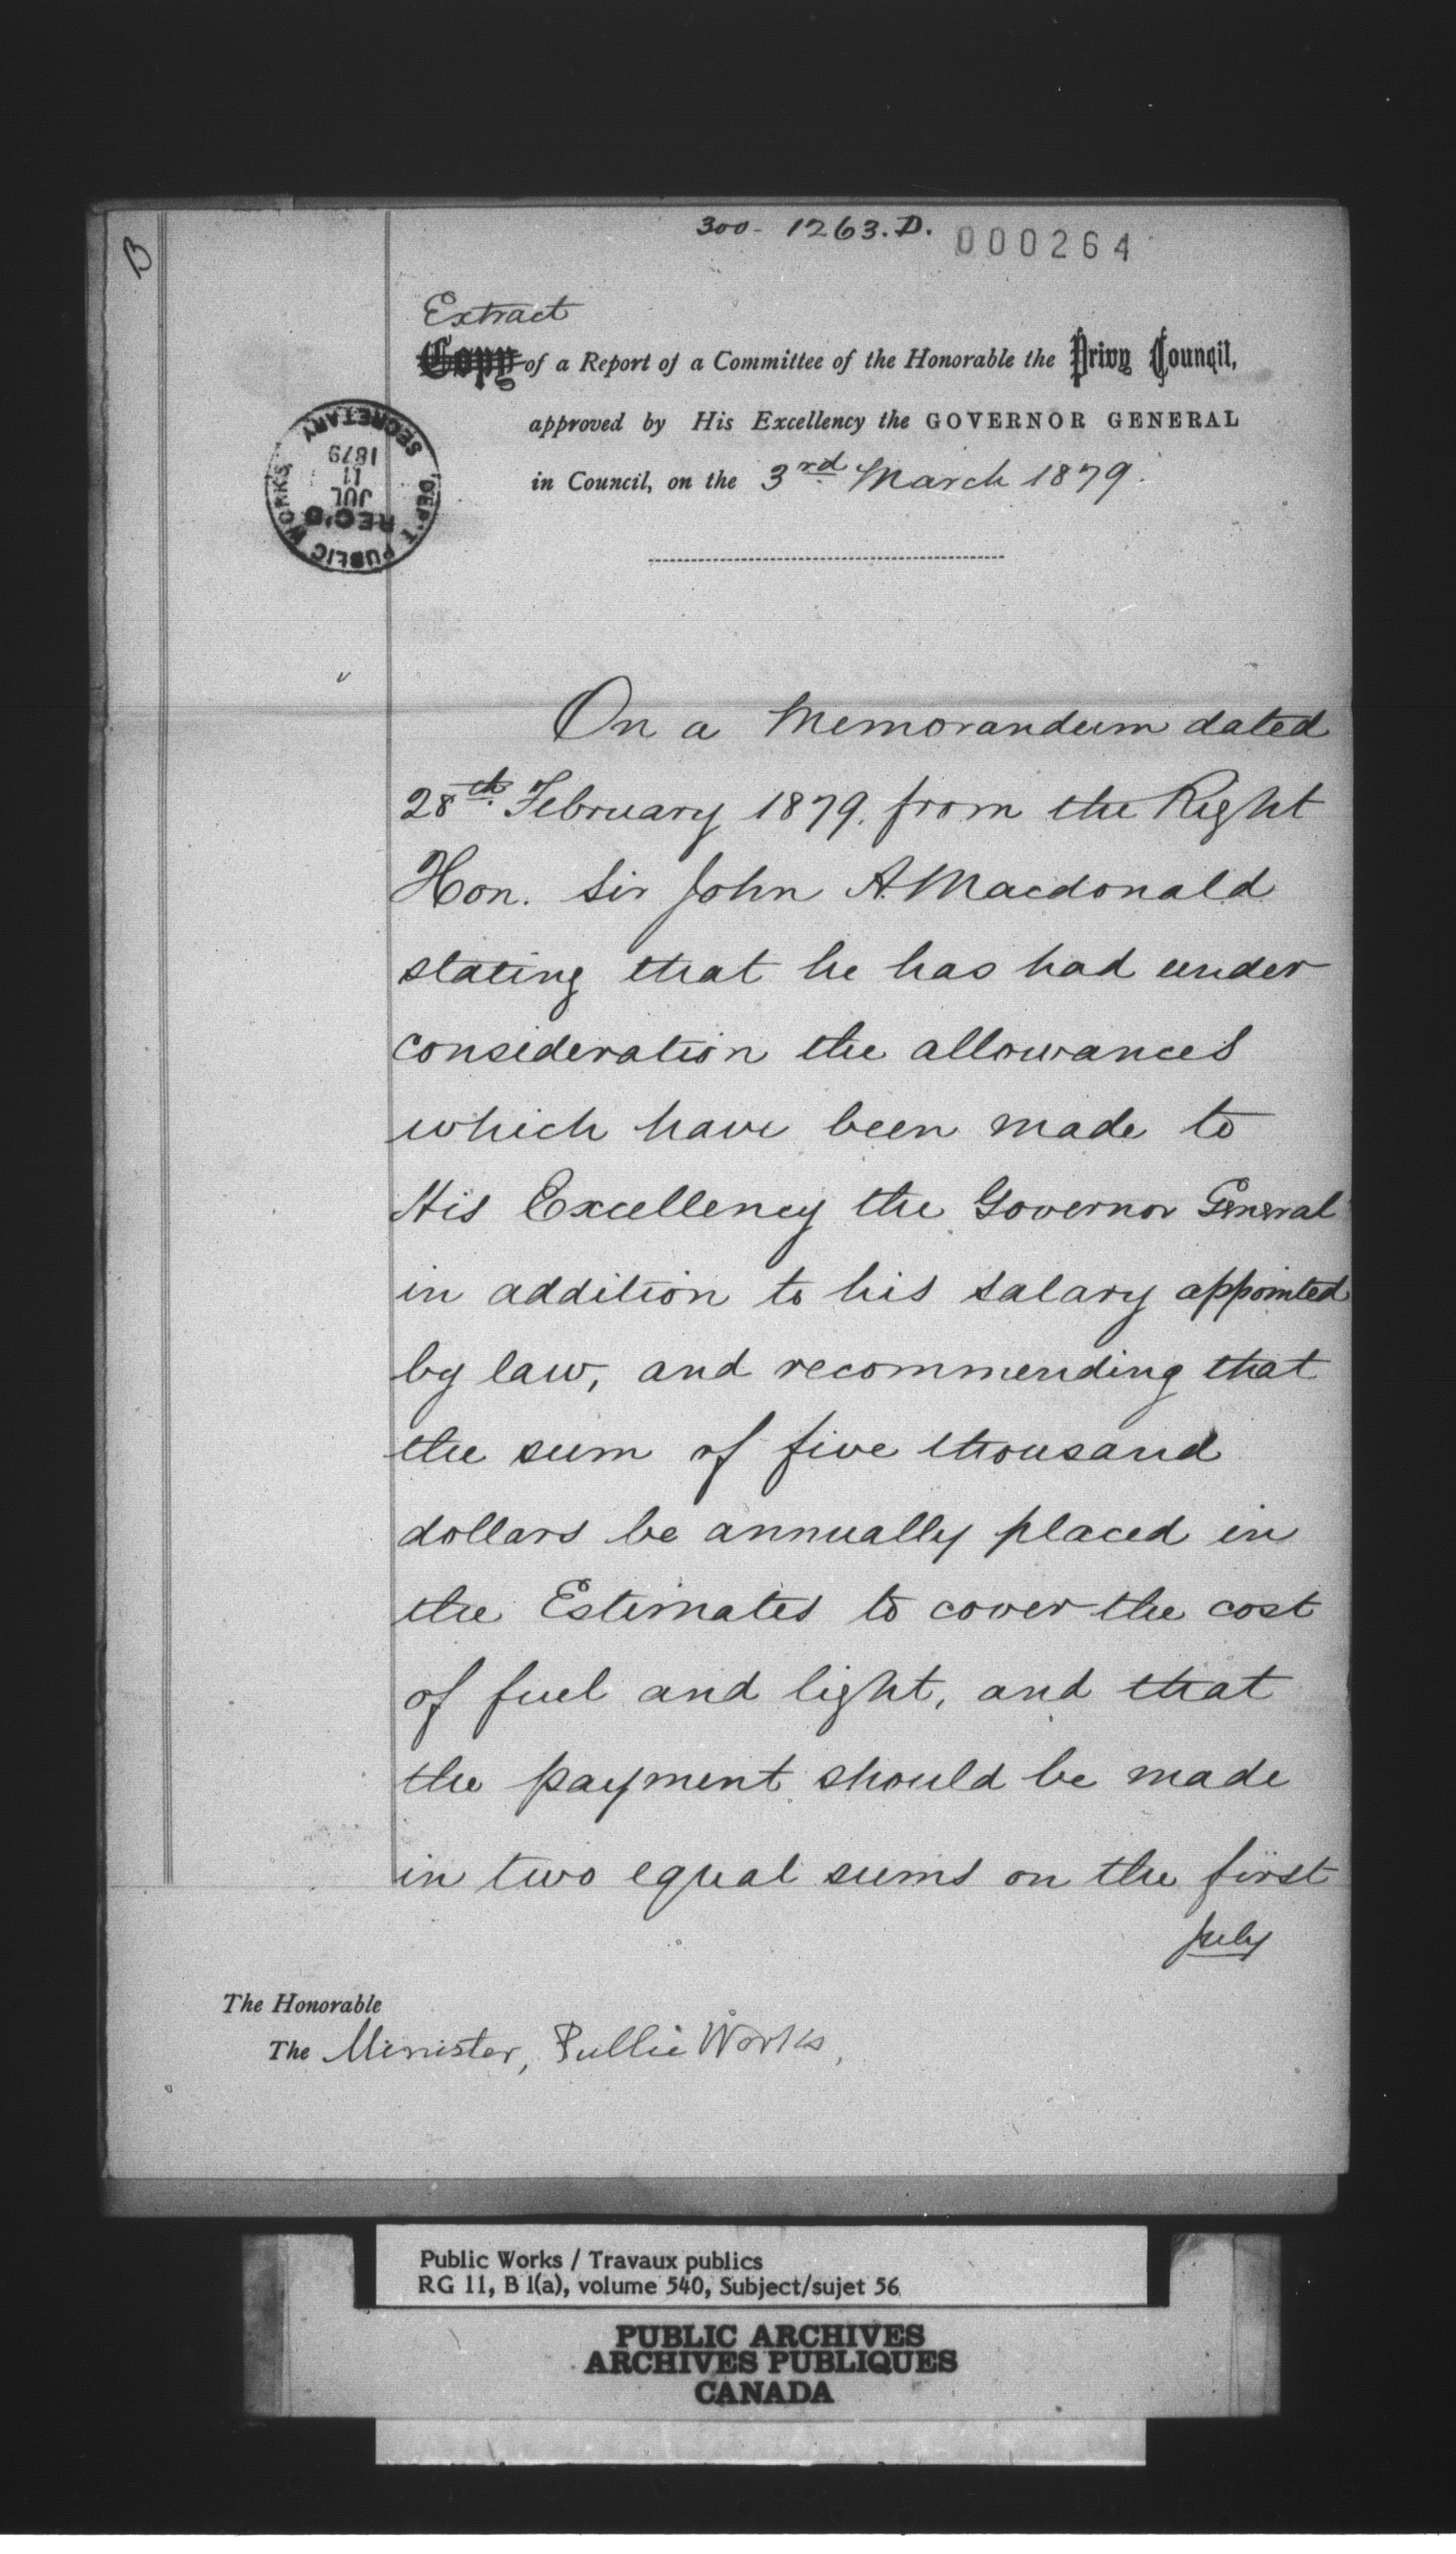 300- 1263. D. 000264
B
Extract
Copy of a Report of a Committee of the Honorable the Privy Council,
approved by His Excellency the GOVERNOR GENERAL
in Council, on the 3rd March 1879.
DEP'T PUBLIC WORKS
REC'D
JUL
11
1879
SECRETARY
On a Memorandum dated
28th February 1879. from the Right
Hon. Sir John A. Macdonald
stating that he has had under
consideration the allowances
which have been made to
His Excellency the Governor General
in addition to his salary appointed
by law, and recommending that
the sum of five thousand
dollars be annually placed in
the Estimates to cover the cost
of fuel and light, and that
the payment should be made
in two equal sums on the first
July
The Honorable
The Minister, Public Works,
Public Works / Travaux publics
RG 11, B 1(a), volume 540, Subject/sujet 56
PUBLIC ARCHIVES
ARCHIVES PUBLIQUES
CANADA